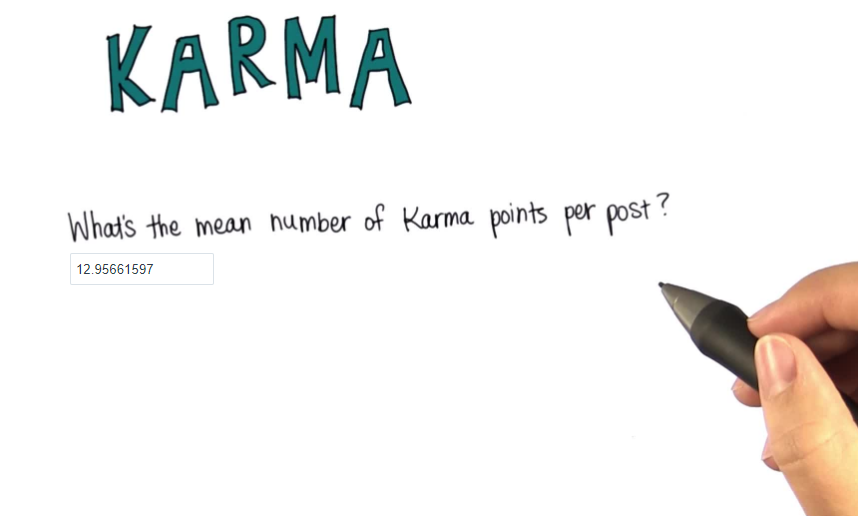 KARMA
What's the mean number of Karma points per post?
12.95661597